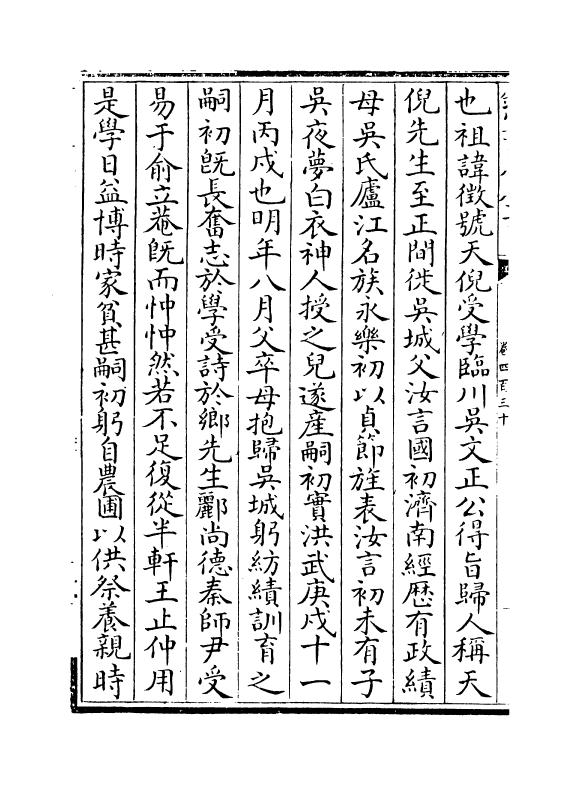 卷四百三十
也祖諱徵號天倪受學臨川吳文正公得旨歸人稱天
倪先生至正間徙吳城父汝言國初濟南經歷有政績
母吳氏廬江名族永樂初以貞節旌表汝言初未有子
吳夜夢白衣神人授之兒遂産嗣初實洪武庚戌十一
月丙戌也明年八月父卒母抱歸吳城躬紡績訓育之
嗣初既長奮志於學受詩於鄉先生酈尚德秦師尹受
易于俞立菴既而忡忡然若不足復從半軒王止仲用
是學日益博時家貧甚嗣初躬自農圃以供祭養親時